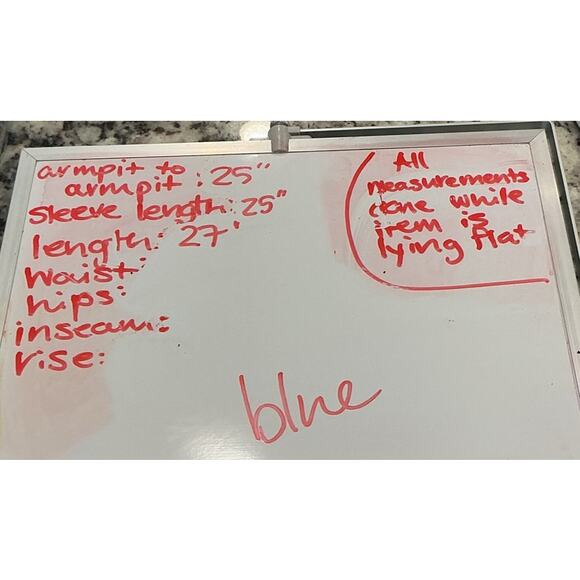 armpit to
armpit: 25"
sleeve length: 25"
length: 27'
waist:
hips:
inseam:
rise:
All
measurements
done while
item is
lying flat
blue